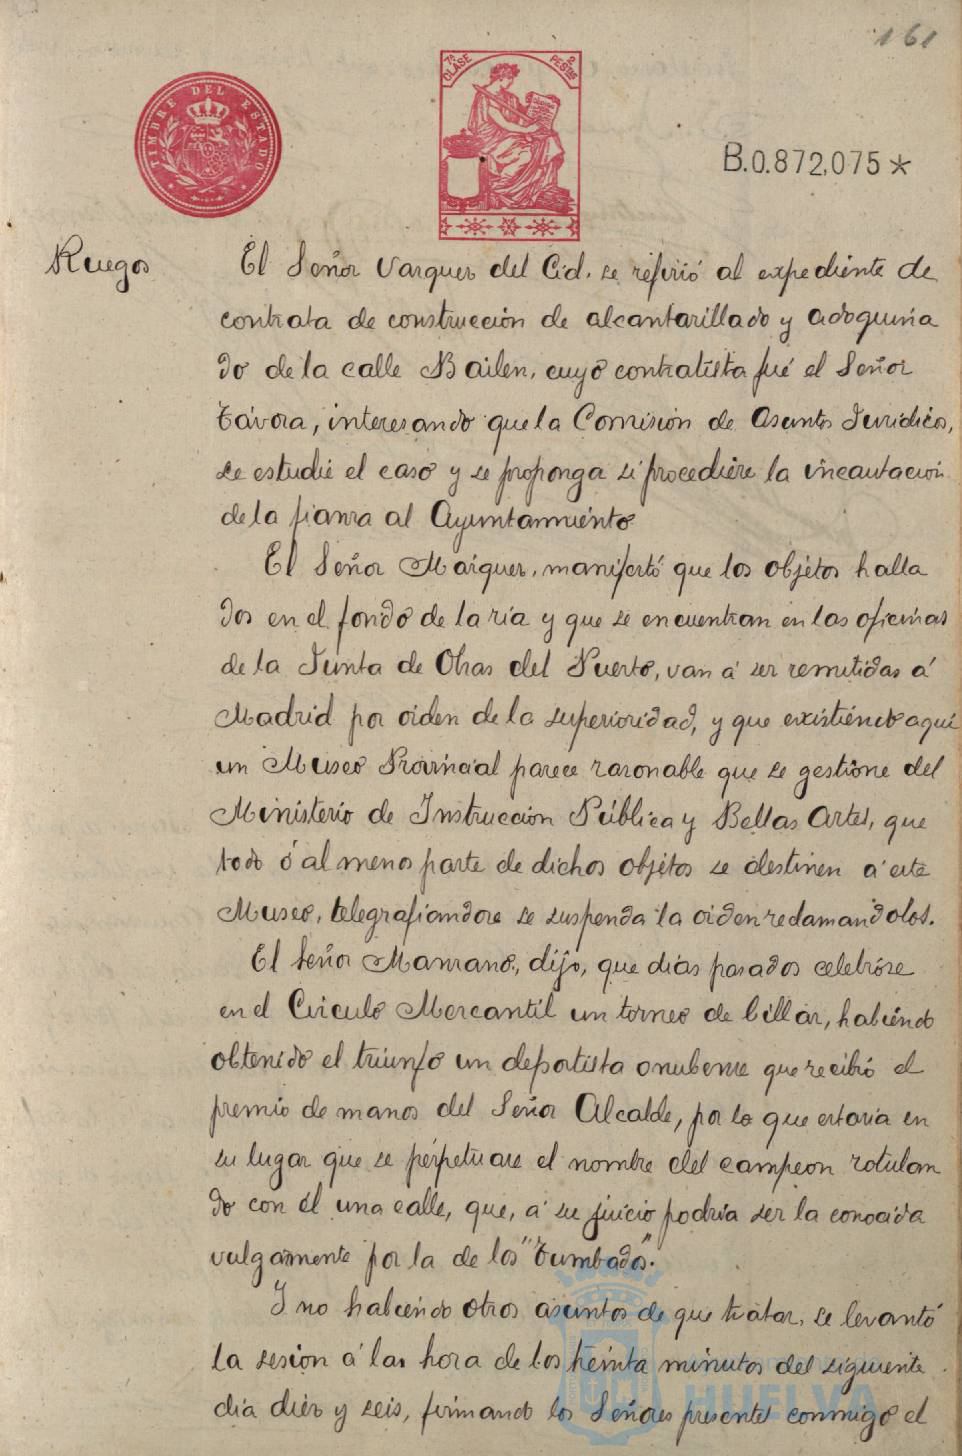 161
TIMBRE DEL ESTADO
7ª CLASE
2 PESTAS
B.0.872,075*
Ruegos
El Señor Vazquez del Cid. se refirió al expediente de
contrata de construcción de alcantarillado y adoquina
do de la calle Bailen, cuyo contratista fué el Señor
Távora, interesando que la Comisión de Asuntos Juridicos,
se estudie el caso y se proponga si procediere la incautación
de la fianza al Ayuntamiento
El Señor Marquez, manifestó que los objetos halla
dos en el fondo de la ría y que se encuentran en las oficinas
de la Junta de Obras del Puerto, van á ser remitidas á
Madrid por orden de la superioridad, y que existiendo aquí
un Museo Provincial parece razonable que se gestione del
Ministerio de Instrucción Pública y Bellas Artes, que
todo ó al menos parte de dichos objetos se destinen á este
Museo, telegrafiandose se suspenda la orden reclamandolos.
El Señor Manzano, dijo, que días pasados celebróse
en el Circulo Mercantil un torneo de billar, habiendo
obtenido el triunfo un deportista onubense que recibió el
premio de manos del Señor Alcalde, por lo que estaria en
su lugar que se perpetuase el nombre del campeon rotulan
do con él una calle, que, á su juicio podría ser la conocida
vulgarmente por la de los "Tumbados".
Y no habiendo otros asuntos de que tratar, se levantó
la sesion á las hora de los treinta minutos del siguiente
día diez y seis, firmando los Señores presentes conmigo el
HUELVA